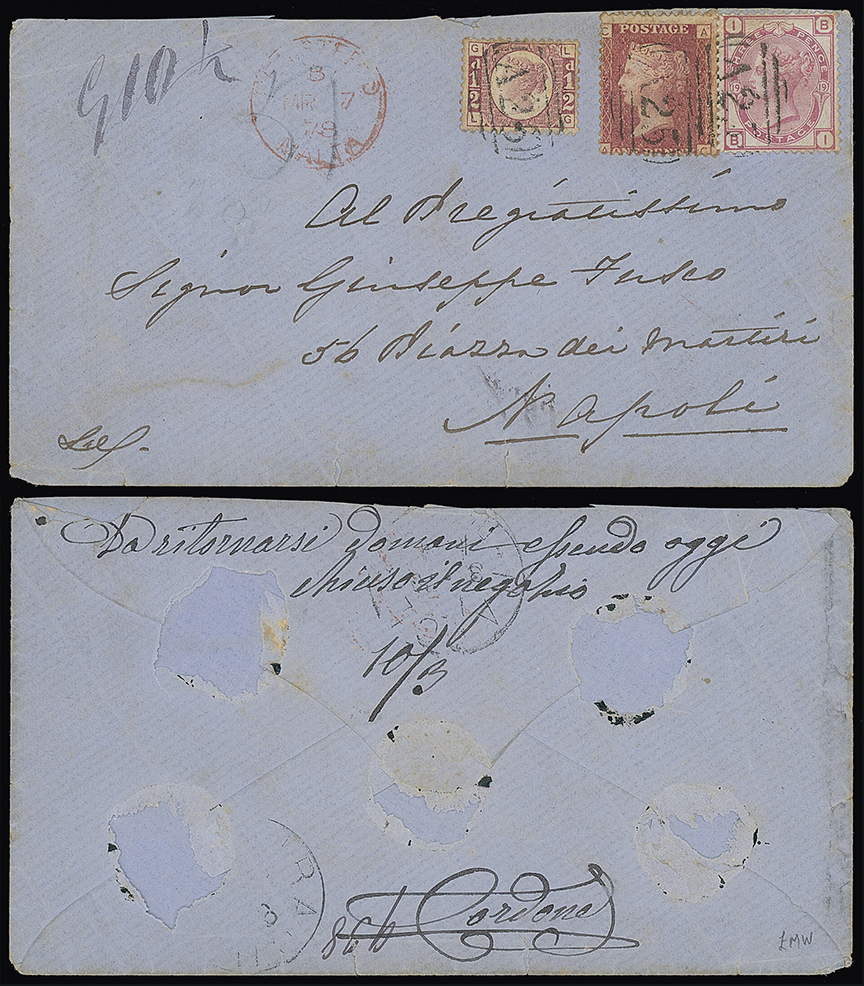 G 10 ½
REGISTERED
B
MR 7
78
MALTA
G L
½ d ½
L G
A25
POSTAGE
C A
A C
A25
I B
THREE PENCE
19 19
POSTAGE
B I
A25
Al Pregiatissimo
Signor Giuseppe Fusco
56 Piazza dei Martiri
Napoli
Da ritornarsi domani essendo oggi
chiuso il negozio
10/3
Cordona
£MW